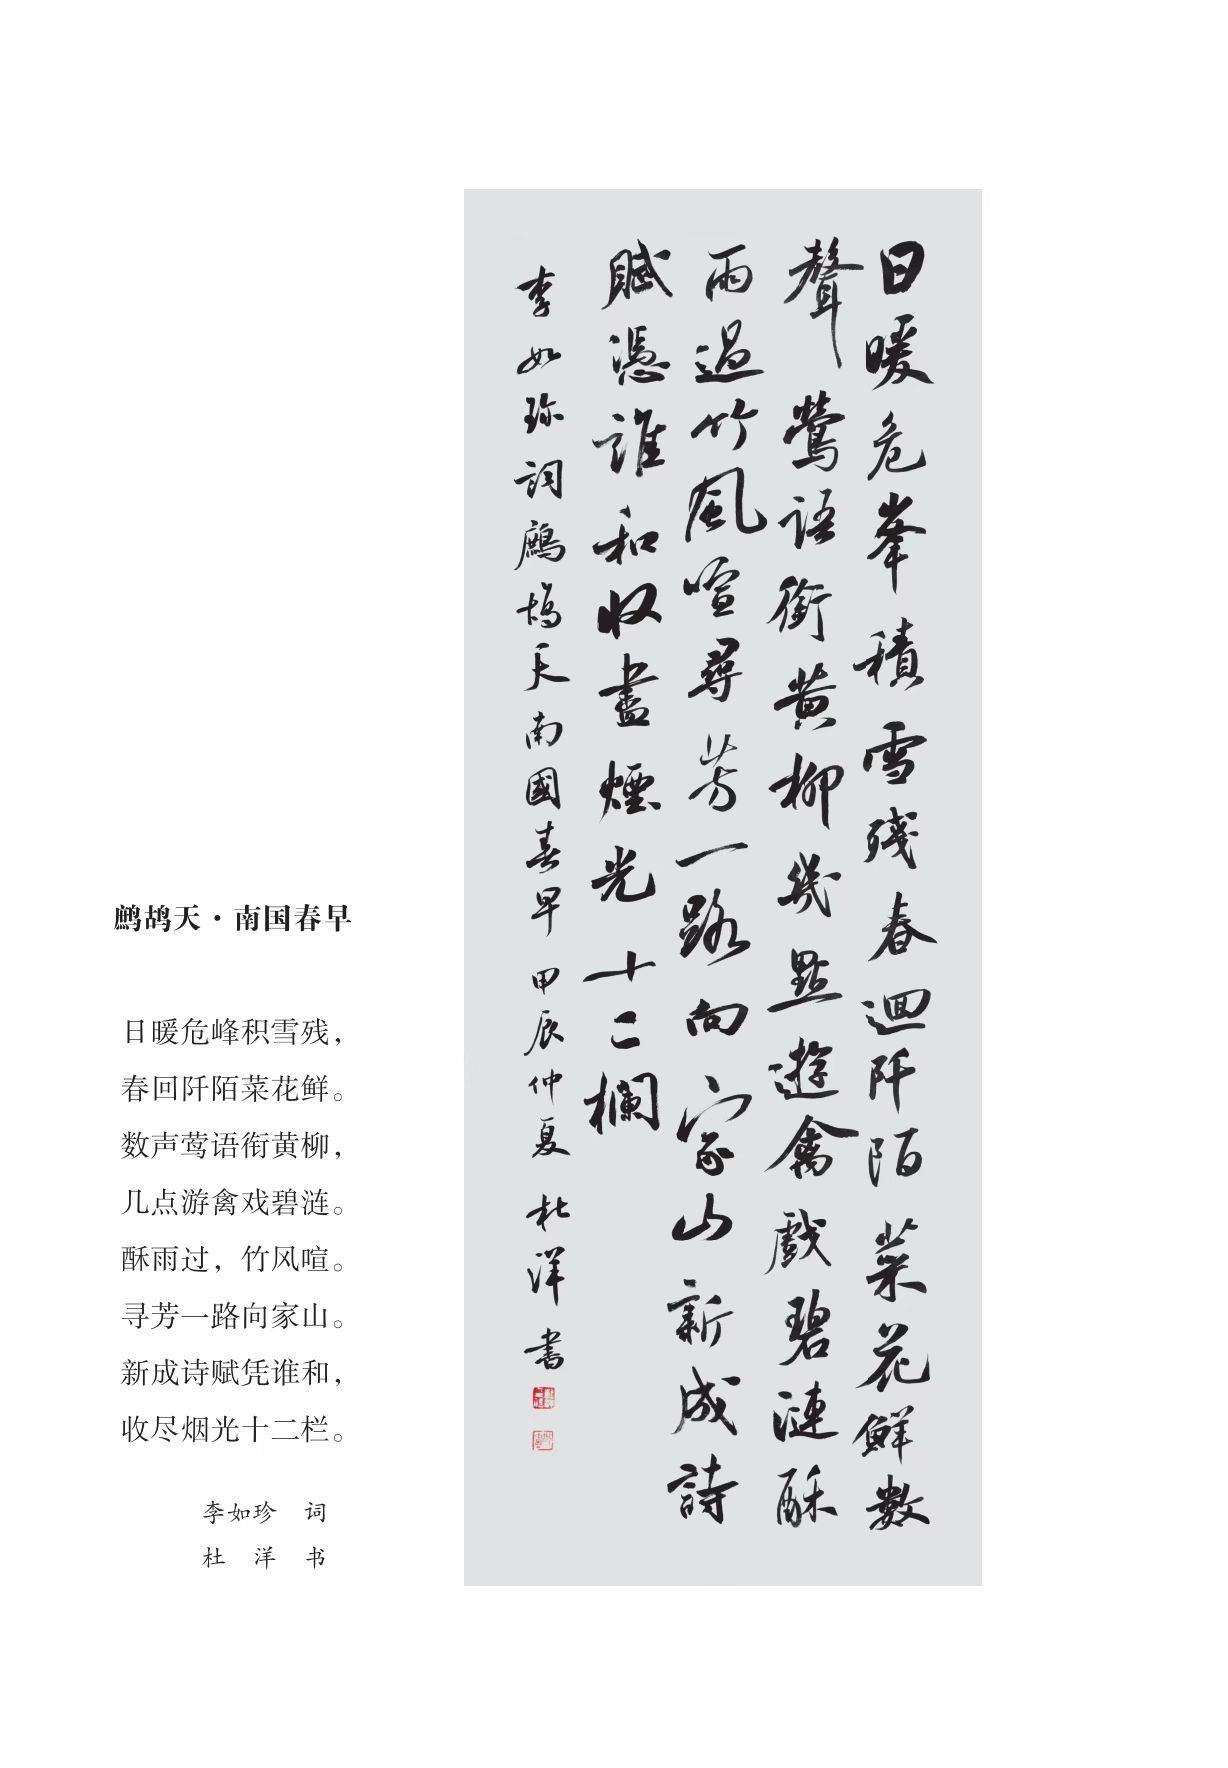 日暖危峯積雪殘春迴阡陌菜花鮮數
聲鶯語銜黄柳幾點遊禽戲碧漣酥
雨過竹風喧尋芳一路向家山新成詩
賦憑誰和收盡煙光十二欄
李如珍詞鷓鴣天南國春早甲辰仲夏杜洋書
鹧鸪天·南国春早
日暖危峰积雪残，
春回阡陌菜花鲜。
数声莺语衔黄柳，
几点游禽戏碧涟。
酥雨过，竹风喧。
寻芳一路向家山。
新成诗赋凭谁和，
收尽烟光十二栏。
李如珍　词
杜　洋　书